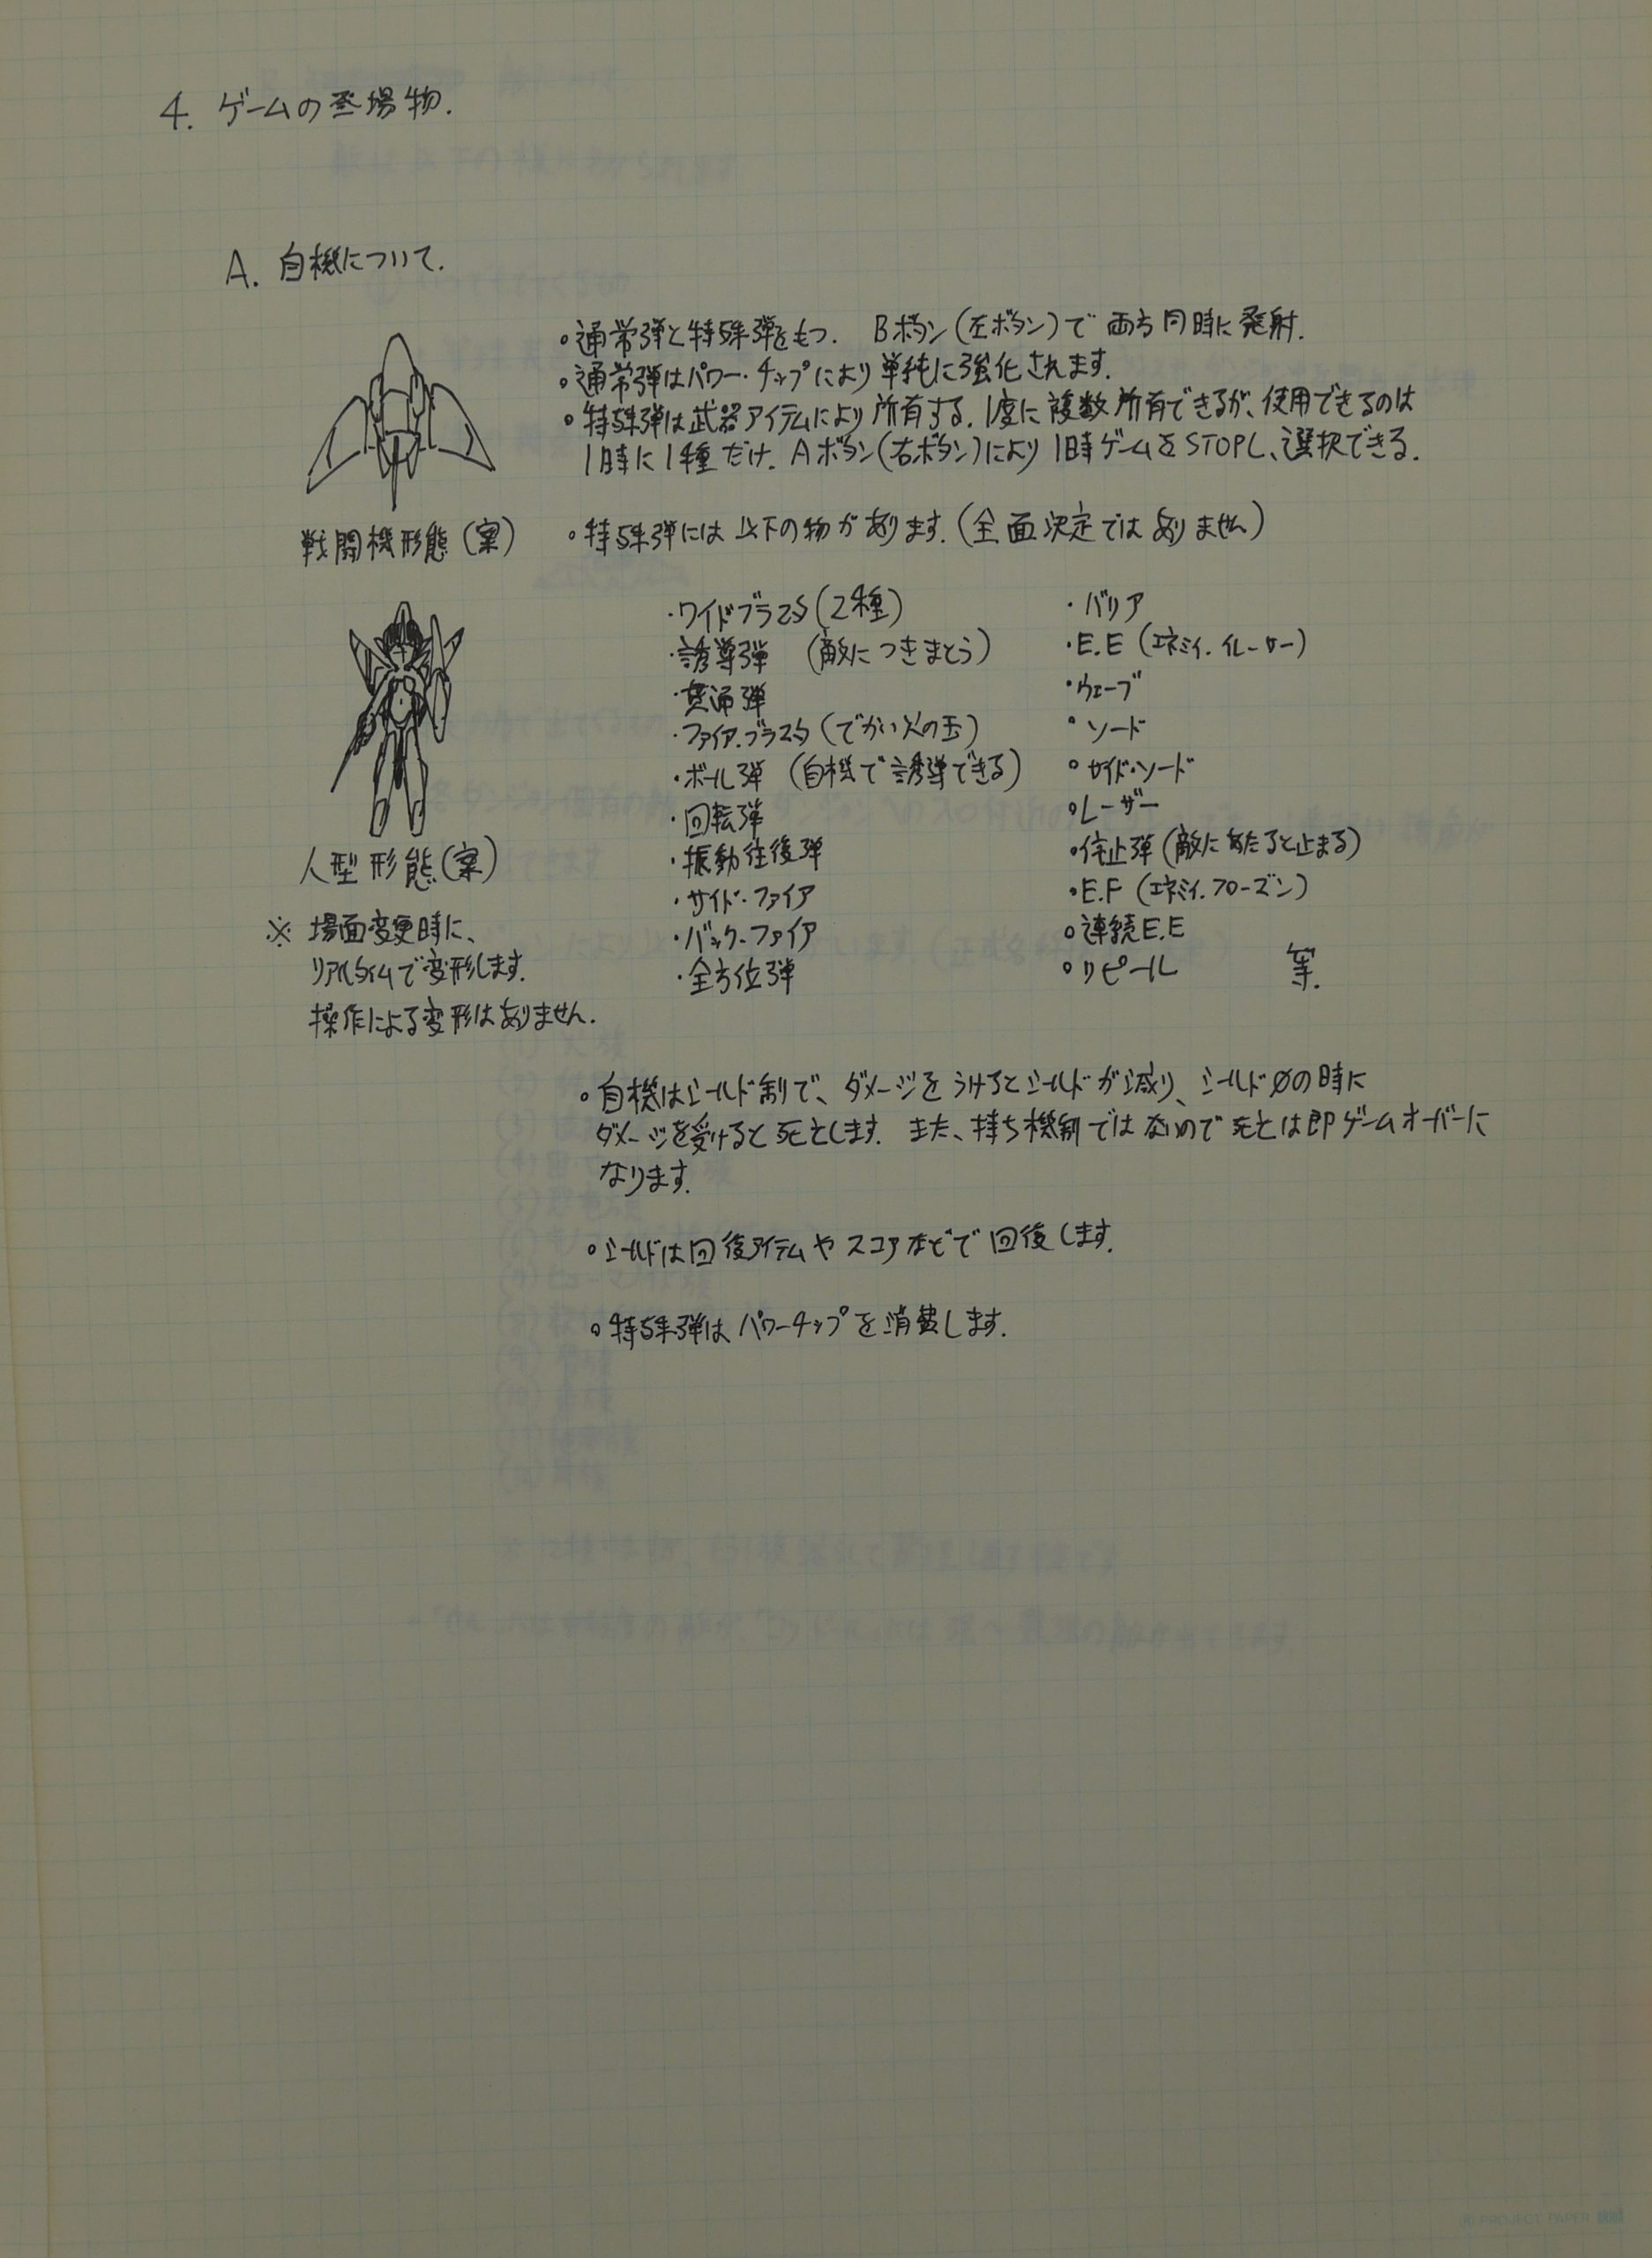 4. ゲームの登場物.
A. 自機について.
○通常弾と特殊弾をもつ. Bボタン(左ボタン)で両方同時に発射.
○通常弾はパワー・チップにより単純に強化されます.
○特殊弾は武器アイテムにより所有する. 1度に複数所有できるが、使用できるのは
1時に1種だけ. Aボタン(右ボタン)により1時ゲームをSTOPし、選択できる.
戦闘機形態(案)
○特殊弾には以下の物があります.(全面決定ではありません)
・ワイドブラスタ(2種)
・誘導弾 (敵につきまとう)
・貫通弾
・ファイア.ブラスタ(でかい火の玉)
・ボール弾 (自機で誘導できる)
・回転弾
・振動往復弾
・サイド・ファイア
・バック・ファイア
・全方位弾
・バリア
・E.E (エネミィ.イレーサー)
・ウェーブ
○ソード
○サイド・ソード
○レーザー
○停止弾(敵にあたると止まる)
○E.F (エネミィ.フローズン)
○連続E.E
○リピール 等.
人型形態(案)
※ 場面変更時に、
リアルタイムで変形します.
操作による変形はありません.
○自機はシールド制で、ダメージをうけるとシールドが減り、シールド0の時に
ダメージを受けると死亡します. また、持ち機制ではないので死亡は即ゲームオーバーに
なります.
○シールドは回復アイテムやスコアなどで回復します.
○特殊弾はパワーチップを消費します.